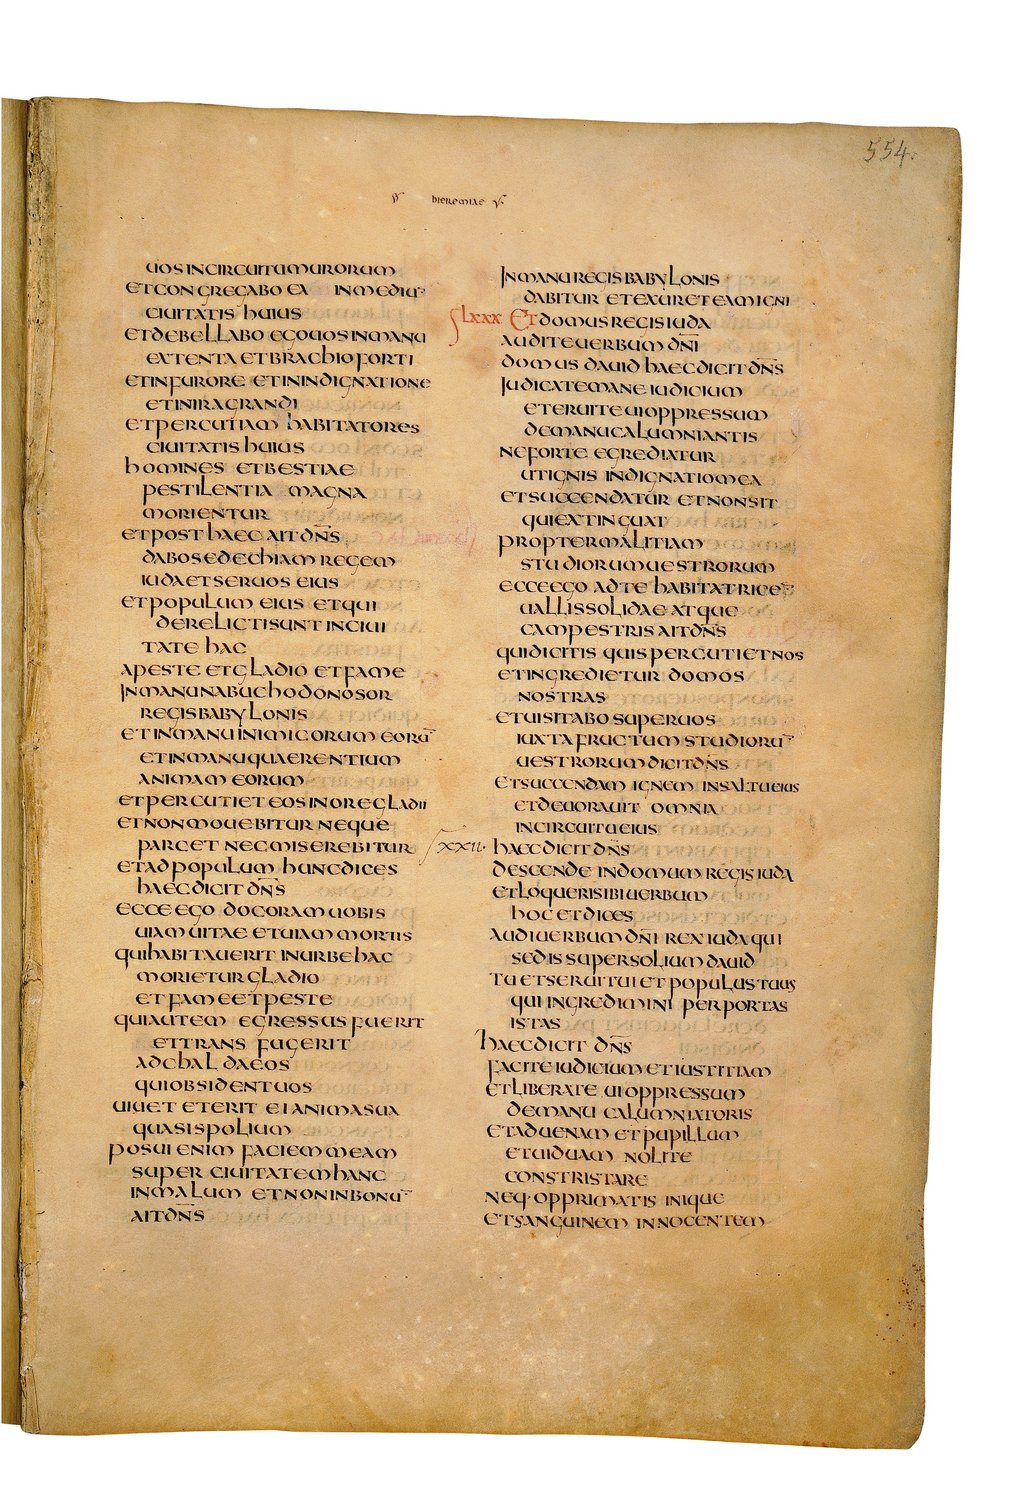 554.
hieremiae v
uos in circuitu murorum
et congregabo ea in mediu
ciuitatis huius
et debellabo ego uos in manu
extenta et brachio forti
et in furore et in indignatione
et in ira grandi
et percutiam habitatores
ciuitatis huius
homines et bestiae
pestilentia magna
morientur
et post haec ait dn̄s
dabo sedechiam regem
iuda et seruos eius
et populum eius et qui
derelicti sunt in ciui
tate hac
a peste et gladio et fame
in manu nabuchodonosor
regis babylonis
et in manu inimicorum eorū
et in manu quaerentium
animam eorum
et percutiet eos in ore gladii
et non mouebitur neque
parcet nec miserebitur
et ad populum hunc dices
haec dicit dn̄s
ecce ego do coram uobis
uiam uitae et uiam mortis
qui habitauerit in urbe hac
morietur gladio
et fame et peste
qui autem egressus fuerit
et transfugerit
ad chaldaeos
qui obsident uos
uiuet et erit ei anima sua
quasi spolium
posui enim faciem meam
super ciuitatem hanc
in malum et non in bonū
ait dn̄s
in manu regis babylonis
dabitur et exuret eam igni
lxxx Et domus regis iuda
audite uerbum dn̄i
domus dauid haec dicit dn̄s
iudicate mane iudicium
et eruite ui oppressum
de manu calumniantis
ne forte egrediatur
ut ignis indignatio mea
et succendatur et non sit
qui extinguat
propter malitiam
studiorum uestrorum
ecce ego ad te habitatricē
uallis solidae atque
campestris ait dn̄s
qui dicitis quis percutiet nos
et ingredietur domos
nostras
et uisitabo super uos
iuxta fructum studiorū
uestrorum dicit dn̄s
et succendam ignem in saltu eius
et deuorauit omnia
in circuitu eius
xxii haec dicit dn̄s
descende in domum regis iuda
et loqueris ibi uerbum
hoc et dices
audi uerbum dn̄i rex iuda qui
sedis super solium dauid
tu et serui tui et populus tuus
qui ingredimini per portas
istas
haec dicit dn̄s
facite iudicium et iustitiam
et liberate ui oppressum
de manu calumniatoris
et aduenam et pupillum
et uiduam nolite
constristare
neq· opprimatis inique
et sanguinem innocentem